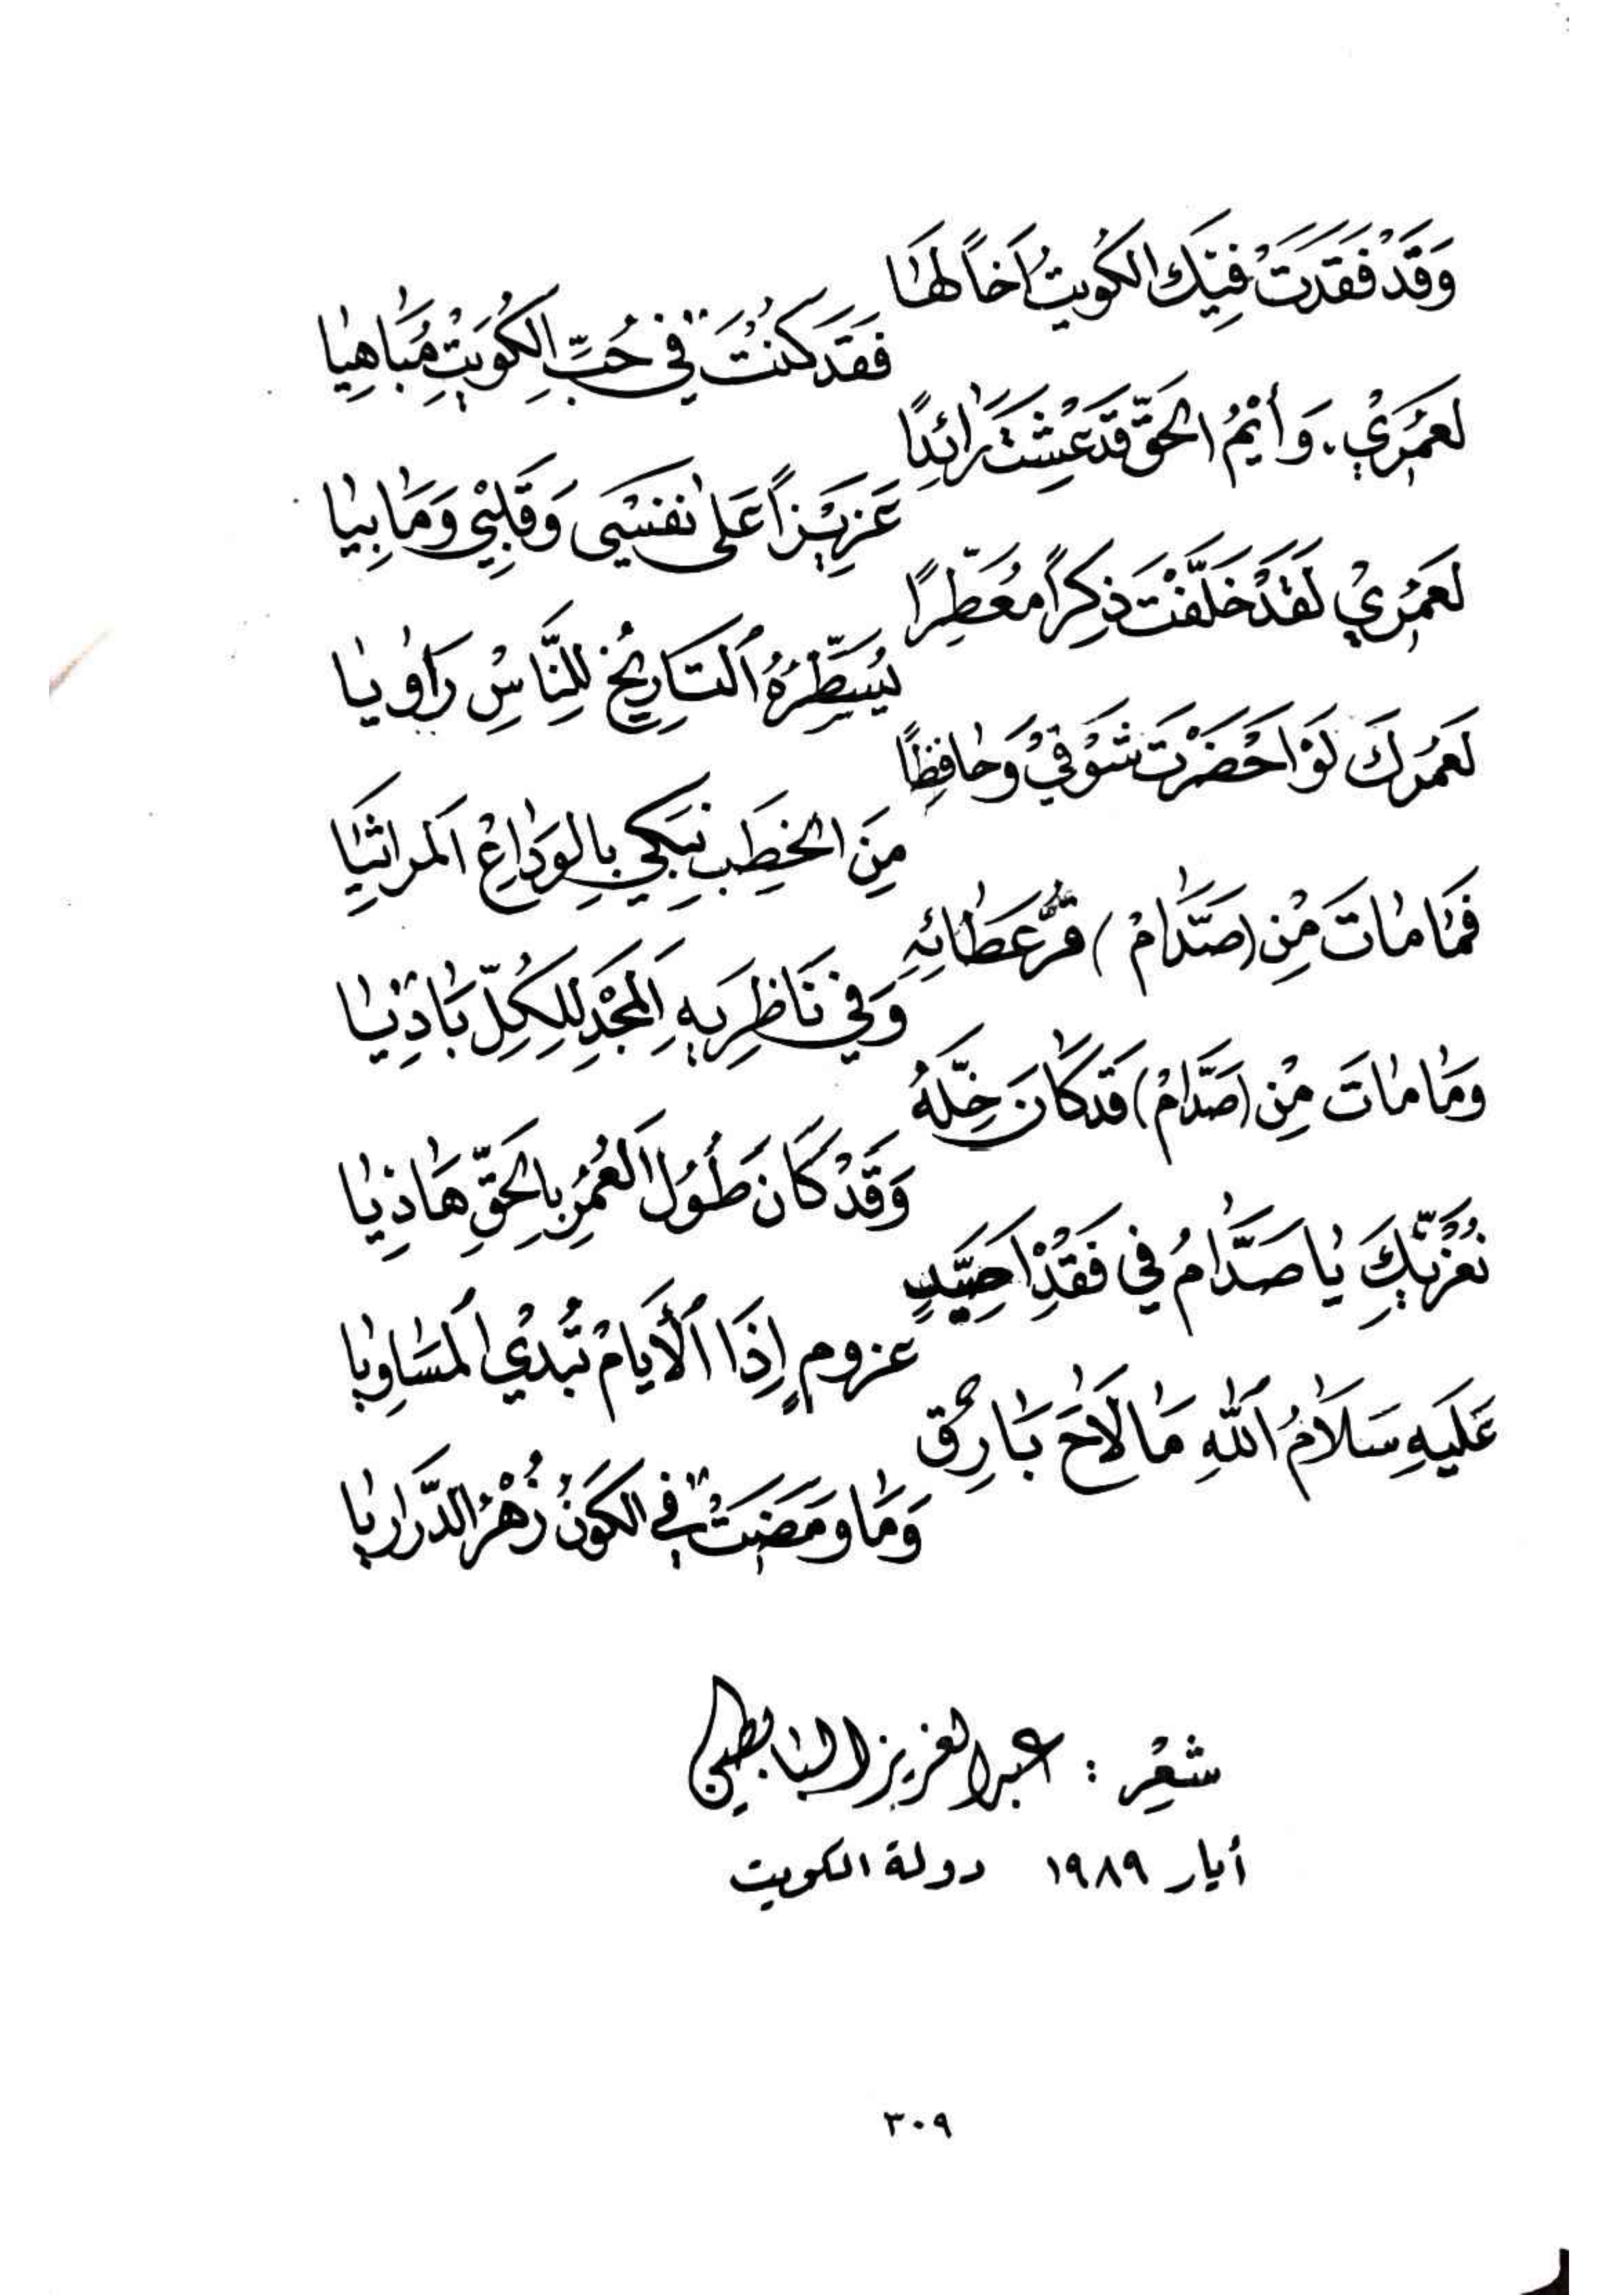 وَقَدْ فَقَدَتْ فِيْكَ الكُوَيتُ اَخاً لَهَا
فَقَد كُنْتَ فِي حُبِّ الكُوَيْتِ مُبَاهِيا
لَعَمْرِيْ . وَأَيْمُ الحَقّ قَدْ عِشْتَ رَائِدًا
عَزِيْزاً عَلى نَفْسْي وَقَلْبِيْ وَمَا بِيا
لَعَمْرِيْ لَقَدْ خَلَّفْتَ ذِكْراً مُعَطِّرًا
يُسَطِّرُهُ اُلتَارِيْخُ لِلنَّاسِ رَاوِيا
لَعَمْرُكَ لَوْ اَحْضَرْتَ شَوْقِيْ وَحَافِظاً
مِنَ الخَطْبِ نَبْكِي بِالوَدَاعِ اَلمراثيَا
فَمَا مَاتَ مِنْ (صَدَّامْ) قُرُّ عَطَائِهِ
وَفي نَاظِرَيهِ اِلمَجْدِ لِلكُلِّ بَادِيَا
وَمَا مَاتَ مِنْ (صَدَّامْ) قَد كَانَ خِلَّهُ
وَقَدْ كَانَ طُوَل اَلعُمْرِ بِالحَقِّ هَاذِيا
نُعَزّيْكَ يَا صَدَّامُ فِي فَقْدِ
عزومٍ إِذَا اُلأَيامْ تُبْدِيْ اُلمَسَاوِيا
عَلَيهِ سَلاَمُ اُللهِ مَا لاَحَ بَارِقٌ
وَمَا وَمَضَتْ فِي الكَوْنُ زُهْرُ الدَّرَاريا
شعْر : عبدالعزيز البابطين
أيار ١٩٨٩ دولة الكويت
٣٠٩